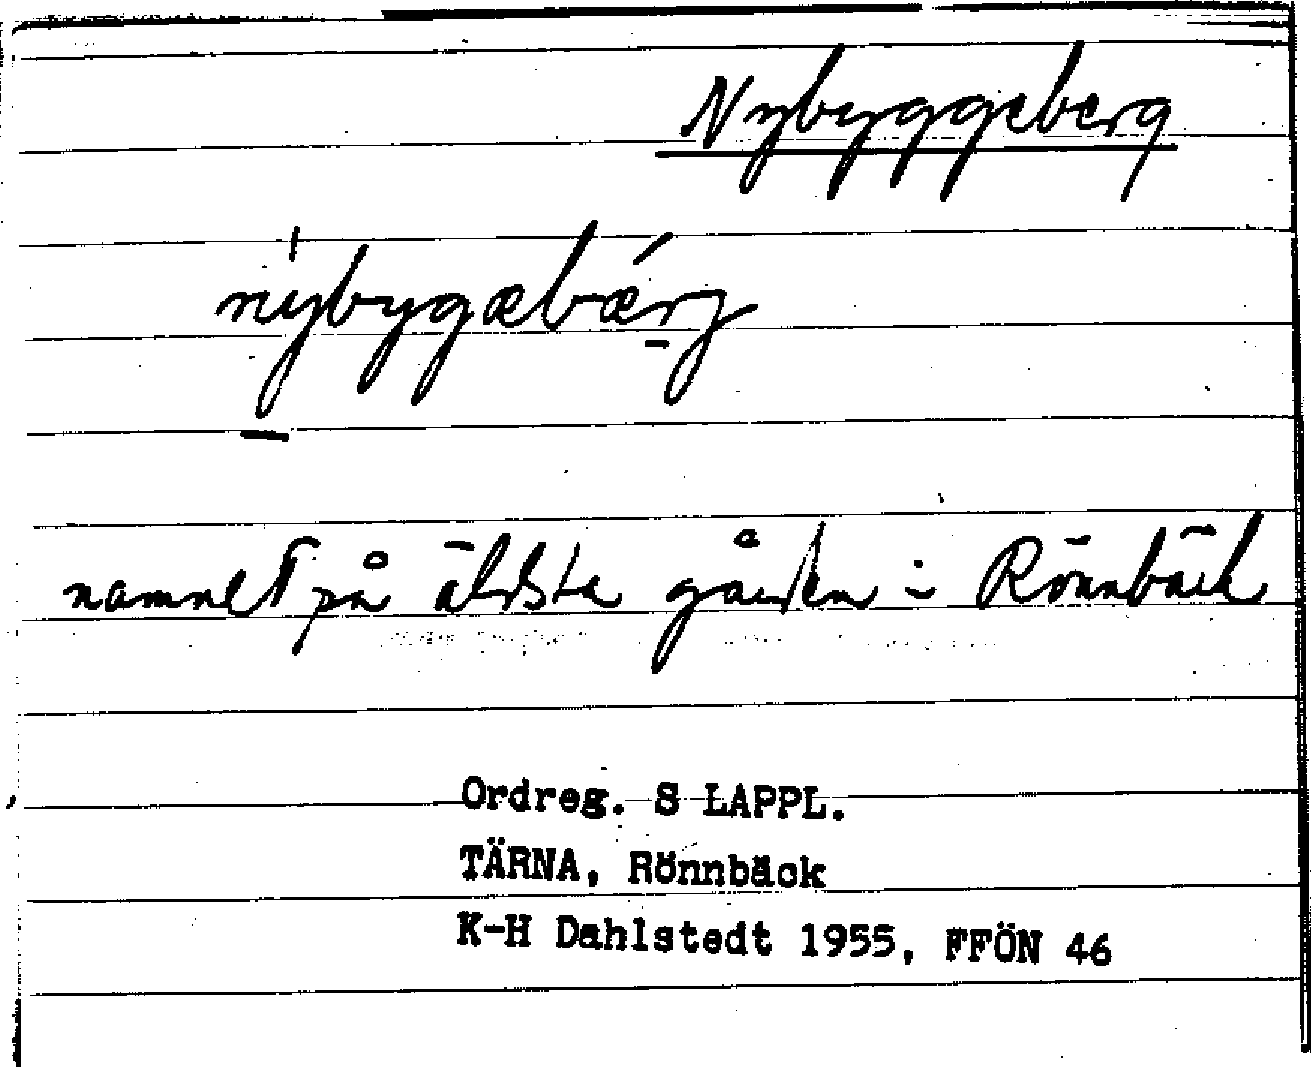 Nybyggeberg
nýbygæbǽrj
namnet på äldsta gården i Rönnbäck
Ordreg. S LAPPL.
TÄRNA, Rönnbäck
K-H Dahlstedt 1955, FFÖN 46